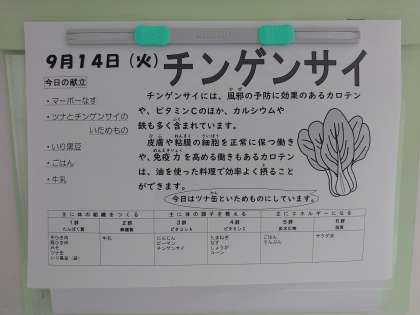 9月14日（火）チンゲンサイ
今日の献立
・マーボーなす
・ツナとチンゲンサイの
いためもの
・いり黒豆
・ごはん
・牛乳
チンゲンサイには、風邪の予防に効果のあるカロテン
や、ビタミンCのほか、カルシウムや
鉄も多く含まれています。
皮膚や粘膜の細胞を正常に保つ働き
や、免疫力を高める働きもあるカロテン
は、油を使った料理で効率よく摂ること
ができます。
今日はツナ缶といためものにしています。
主に体の組織をつくる 主に体の調子を整える 主にエネルギーになる
1群 2群 3群 4群 5群 6群
たんぱく質 無機質 ビタミンA ビタミンC 炭水化物 脂質
牛乳 にんじん たまねぎ ごはん サラダ油
ピーマン なす でんぷん
みそ チンゲンサイ しょうが
ツナ缶 コーン